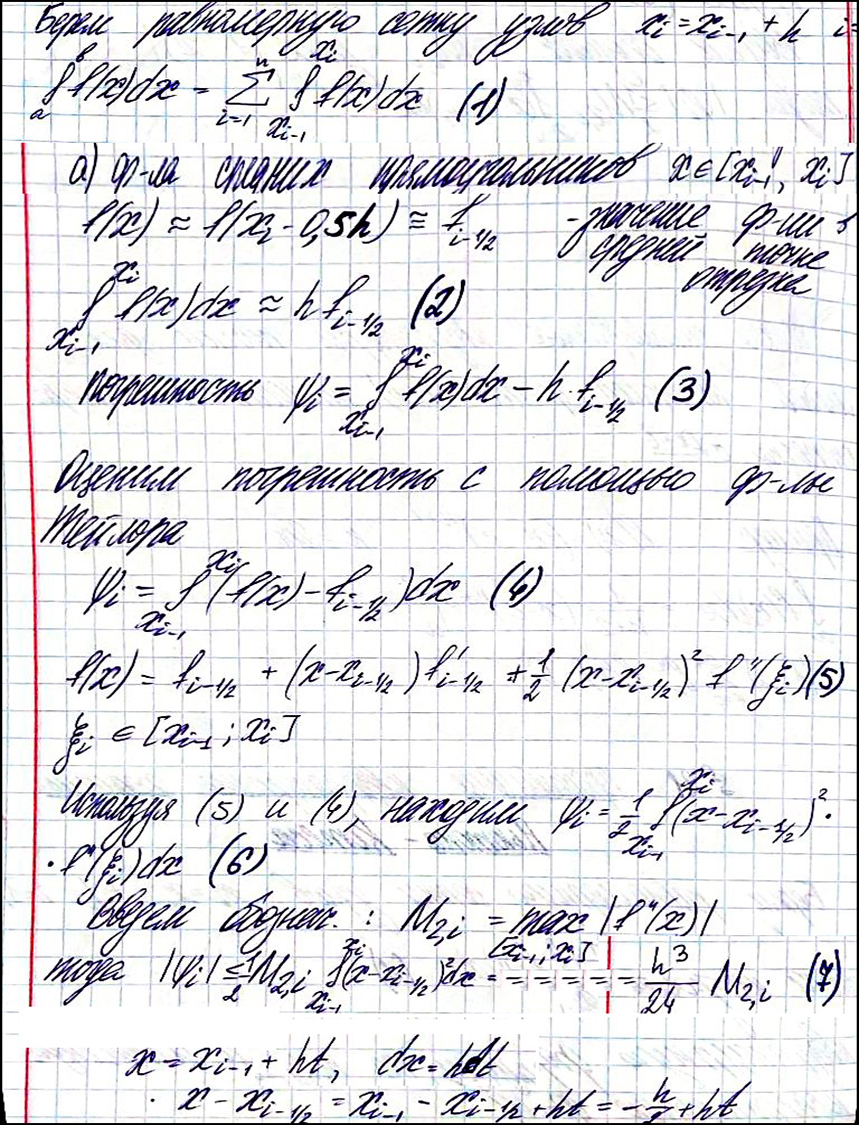 Берем равномерную сетку узлов xᵢ = xᵢ₋₁ + h i=
∫ₐᵇ f(x)dx = ∑ᵢ₌₁ⁿ ∫_{xᵢ₋₁}^{xᵢ} f(x)dx (1)
а) ф-ла средних прямоугольников x ∈ [xᵢ₋₁, xᵢ]
f(x) ≈ f(xᵢ - 0,5h) ≅ f_{i-1/2} - значение ф-ии в
средней точке
отрезка
∫_{xᵢ₋₁}^{xᵢ} f(x)dx ≈ h f_{i-1/2} (2)
Погрешность ψᵢ = ∫_{xᵢ₋₁}^{xᵢ} f(x)dx - h · f_{i-1/2} (3)
Оценим погрешность с помощью ф-лы
Тейлора
ψᵢ = ∫_{xᵢ₋₁}^{xᵢ} (f(x) - f_{i-1/2})dx (4)
f(x) = f_{i-1/2} + (x - x_{i-1/2}) f'_{i-1/2} + 1/2 (x - x_{i-1/2})² f''(ξᵢ) (5)
ξᵢ ∈ [xᵢ₋₁ ; xᵢ]
Используя (5) и (4), находим ψᵢ = 1/2 ∫_{xᵢ₋₁}^{xᵢ} (x - x_{i-1/2})² ·
· f''(ξᵢ)dx (6)
Введем обознач. : M_{2,i} = max_{[xᵢ₋₁ ; xᵢ]} |f''(x)|
тогда |ψᵢ| ≤ 1/2 M_{2,i} ∫_{xᵢ₋₁}^{xᵢ} (x - x_{i-1/2})² dx = = = = = = h³/24 M_{2,i} (7)
x = xᵢ₋₁ + ht, dx = hdt
· x - x_{i-1/2} = xᵢ₋₁ - x_{i-1/2} + ht = - h/2 + ht